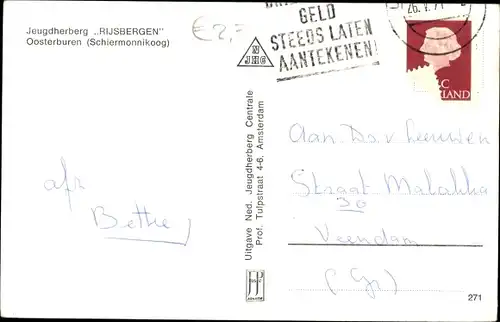 Jeugdherberg „RIJSBERGEN"
Oosterburen (Schiermonnikoog)
€ 2,=
GELD
STEEDS LATEN
AANTEKENEN
26.
N
JHC
C
Uitgave Ned. Jeugdherberg Centrale
Prof. Tulpstraat 4-6, Amsterdam
afz
Bethe
Aan Ds. v Leeuwen
Straat Malakka
30
Veendam
(Gr)
JP
271